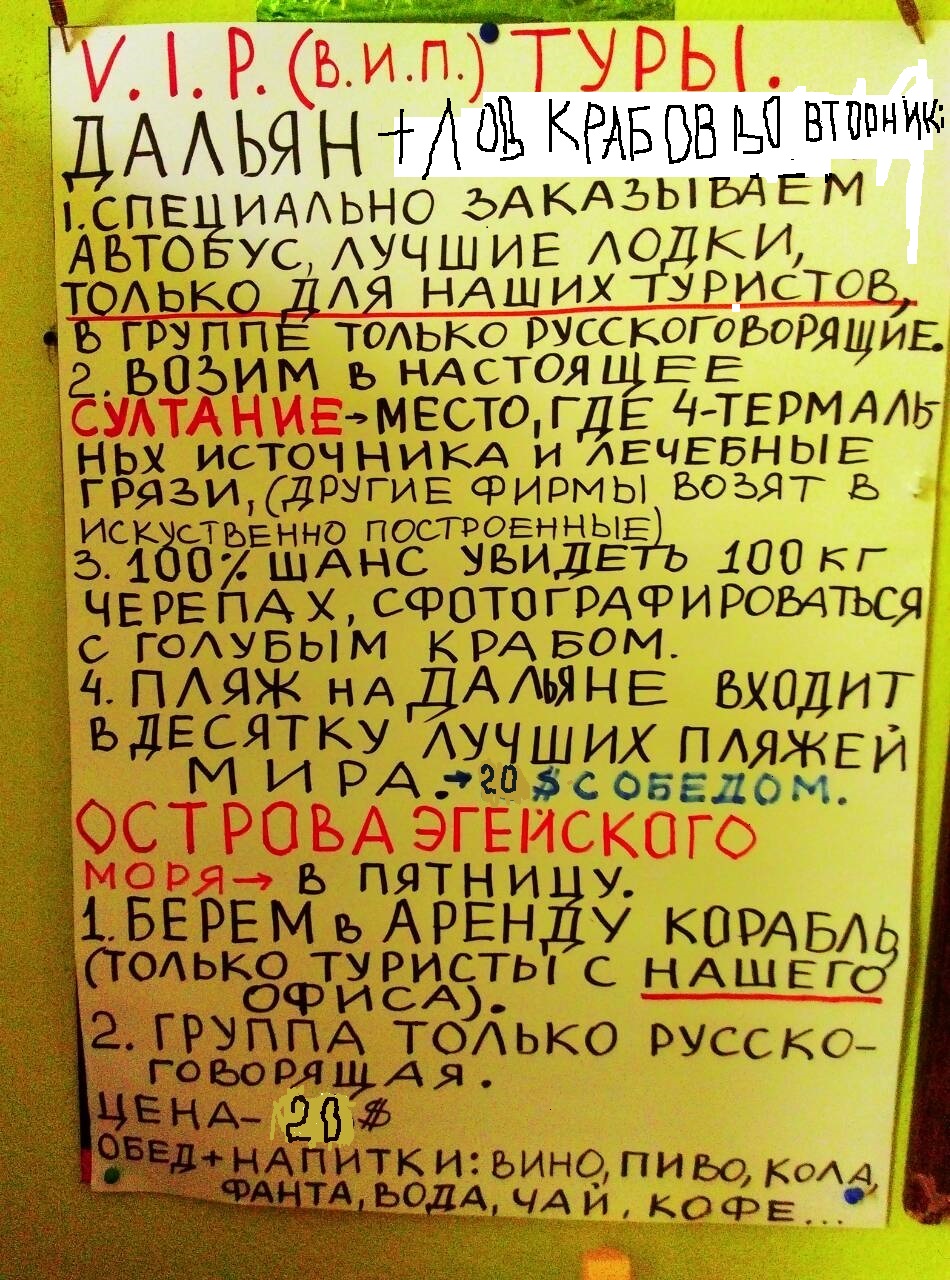 V.I.P. (В.И.П.) ТУРЫ.
ДАЛЬЯН + ЛОВ КРАБОВ ВО ВТОРНИК:
1. СПЕЦИАЛЬНО ЗАКАЗЫВАЕМ
АВТОБУС, ЛУЧШИЕ ЛОДКИ,
ТОЛЬКО ДЛЯ НАШИХ ТУРИСТОВ,
В ГРУППЕ ТОЛЬКО РУССКОГОВОРЯЩИЕ.
2. ВОЗИМ В НАСТОЯЩЕЕ
СУЛТАНИЕ→МЕСТО, ГДЕ 4-ТЕРМАЛЬ-
НЫХ ИСТОЧНИКА И ЛЕЧЕБНЫЕ
ГРЯЗИ, (ДРУГИЕ ФИРМЫ ВОЗЯТ В
ИСКУСТВЕННО ПОСТРОЕННЫЕ)
3. 100% ШАНС УВИДЕТЬ 100 КГ
ЧЕРЕПАХ, СФОТОГРАФИРОВАТЬСЯ
С ГОЛУБЫМ КРАБОМ.
4. ПЛЯЖ НА ДАЛЬЯНЕ ВХОДИТ
В ДЕСЯТКУ ЛУЧШИХ ПЛЯЖЕЙ
МИРА.→20 $ С ОБЕДОМ.
ОСТРОВА ЭГЕЙСКОГО
МОРЯ→ В ПЯТНИЦУ.
1. БЕРЕМ В АРЕНДУ КОРАБЛЬ
(ТОЛЬКО ТУРИСТЫ С НАШЕГО
ОФИСА).
2. ГРУППА ТОЛЬКО РУССКО-
ГОВОРЯЩАЯ.
ЦЕНА- 20 $
ОБЕД+НАПИТКИ: ВИНО, ПИВО, КОЛА,
ФАНТА, ВОДА, ЧАЙ, КОФЕ...